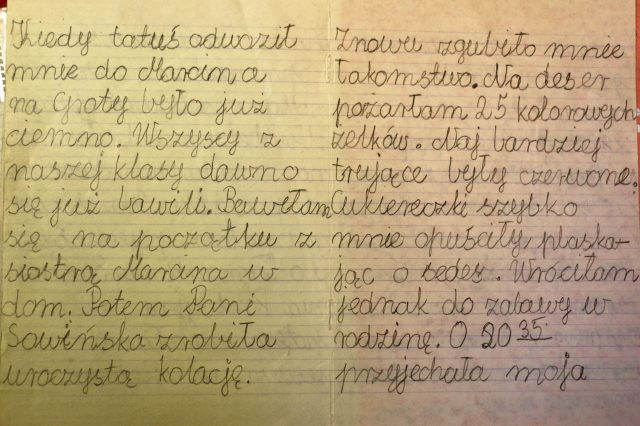 Kiedy tatuś odwoził
mnie do Marcina
na Groty było już
ciemno. Wszyscy z
naszej klasy dawno
się już bawili. Bawiłam
się na początku z
siostrą Marcina w
dom. Potem Pani
Sowińska zrobiła
uroczystą kolację.
Znowu zgubiło mnie
łakomstwo. Na deser
pożarłam 25 kolorowych
żelków. Naj bardziej
trujące były czerwone.
Cukiereczki szybko
mnie opuściły plaska-
jąc o sedes. Wróciłam
jednak do zabawy w
rodzinę. O 20 35
przyjechała moja